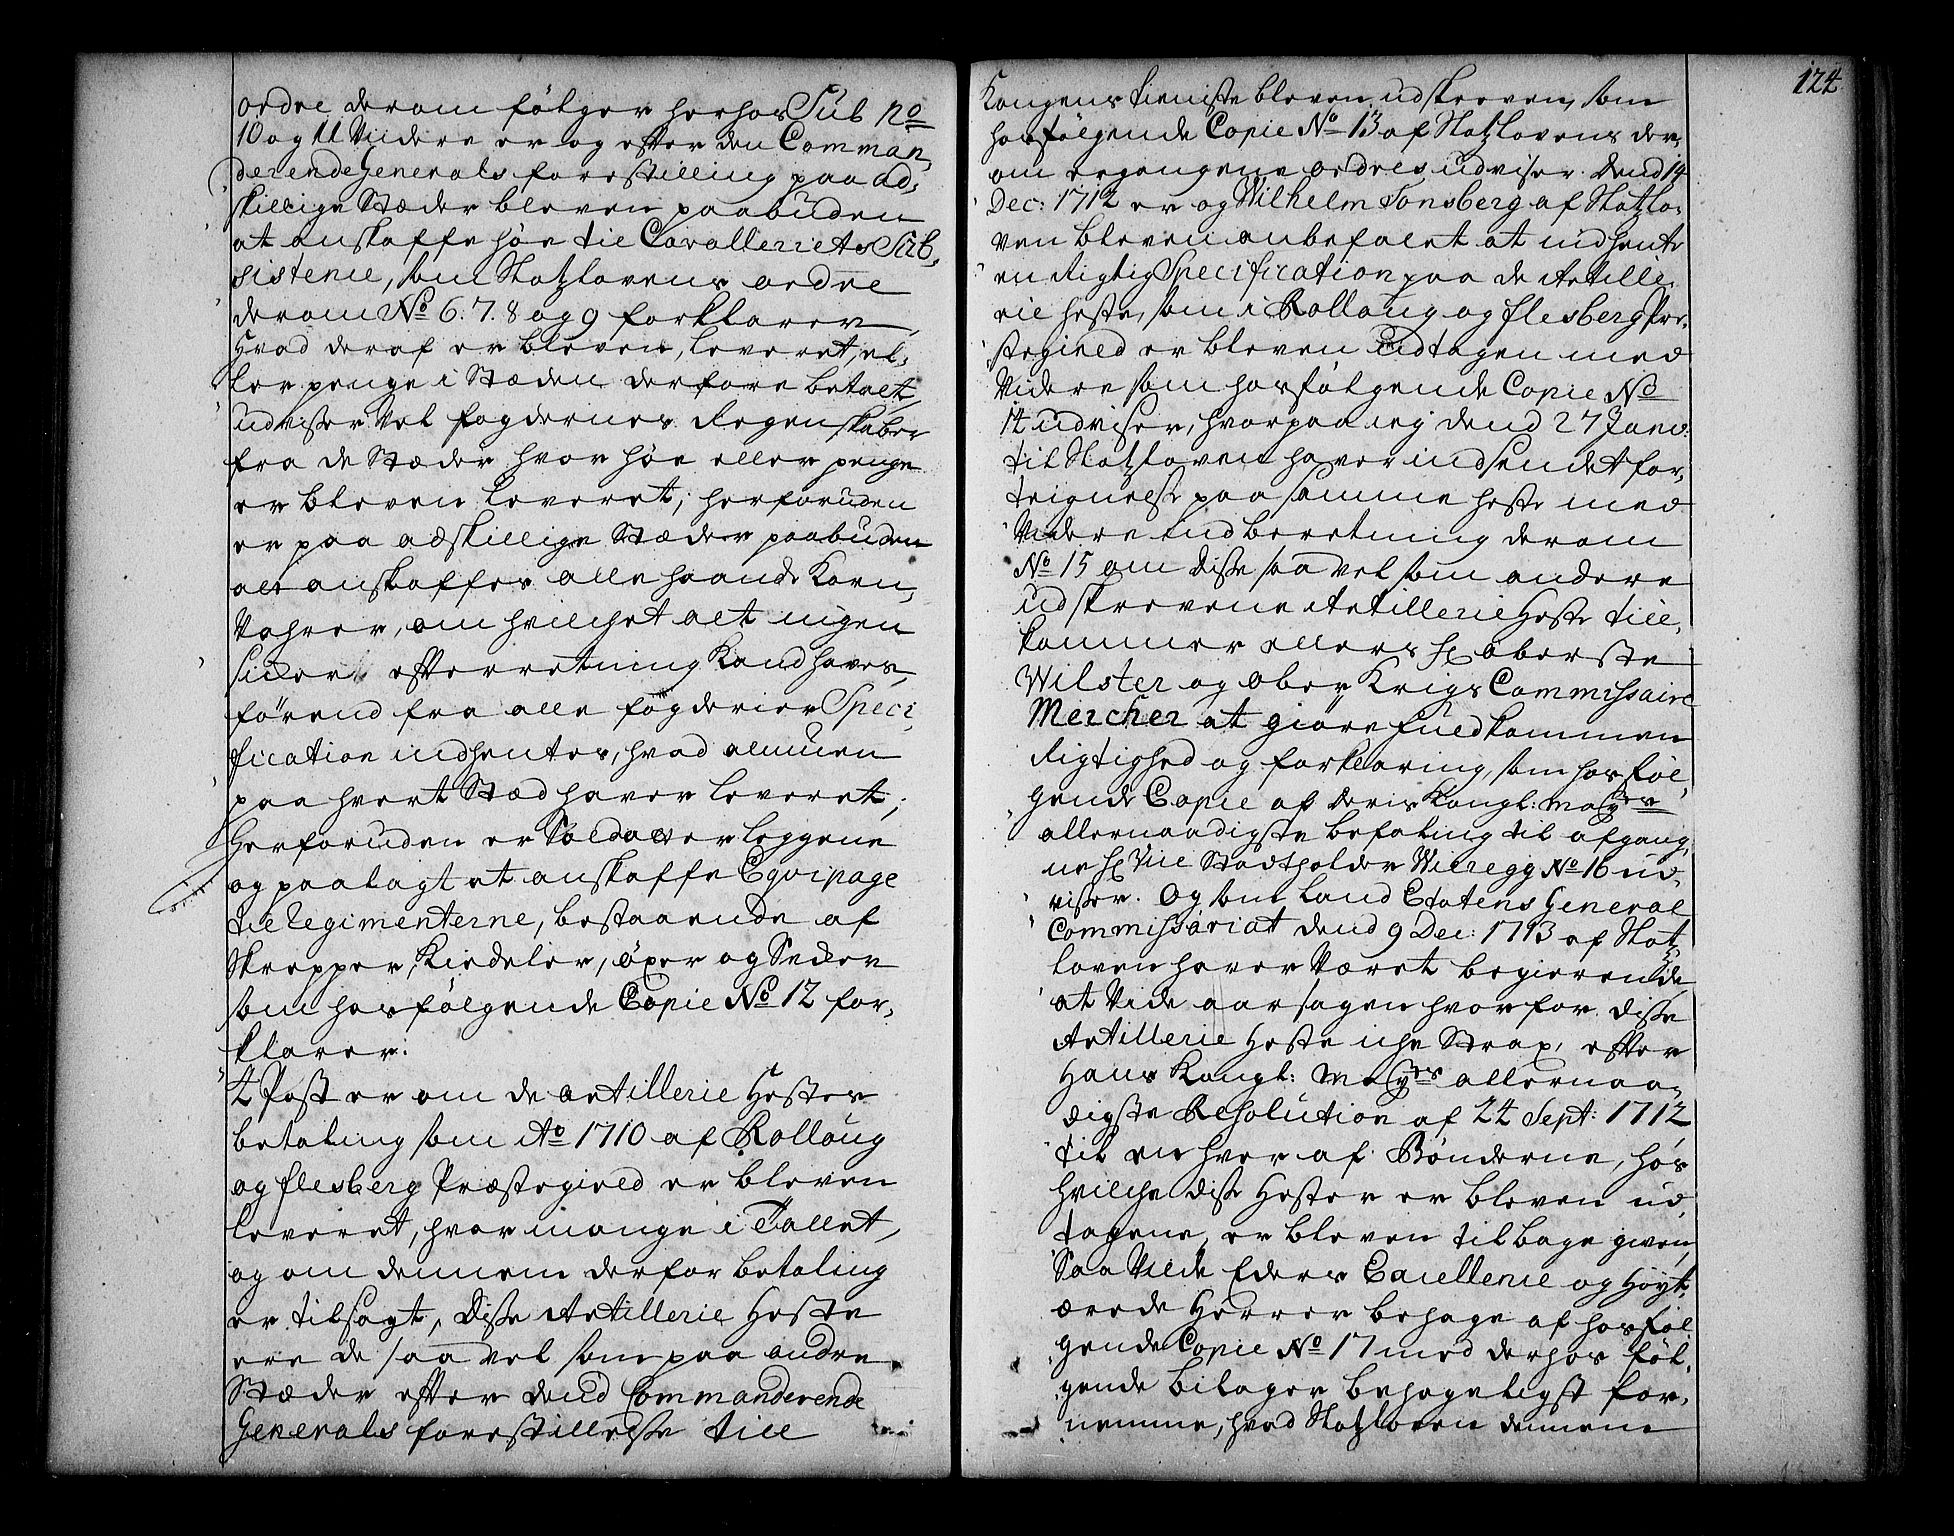 ordre derom følger herhos Sub No
10 og 11 Videre er og effter den Comman,
derende Generals forestilling paa ad,
skillige Stæder bleven paabuden
at anskaffe høe till Cavalleriets Sub,
sistence, som Slotzlovens ordre
derom No 6. 7. 8 og 9 forklarer,
Hvad deraf er bleven, leveret, el,
ler penge i Stæden derfore betalt,
udviser Vel fogdernes Regenskaber
fra de Stæder hvor høe eller penge
er bleven leveret; herforuden
er paa adskillige Stæder paabuden
at anskaffes alle haande Korn,
Vahrer, om hvilchet alt ingen
sicker effterretning Kand haves,
førend fra alle fogderier Speci,
fication indhentes, hvad almuen
paa hvert Stæd haver leveret;
Herforuden er Soldater leggene
og paalagt at anskaffe Eqvipage
til Regimenterne, bestaaende af
Skrepper, Kiedeler, øxer og Seeler
som hosfølgende Copie No 12 for,
klarer:
4 Post er om de artillerie Hestes
betaling som Ao 1710 af Rolloug
og flesberg Præstegield er bleven
leveret, hvor mange i Tallet,
og om dennem derfor betaling
er tilsagt, Disse Artillerie Heste
ere de saa vel som paa andre
Stæder effter dend Commanderende
Generals forestillelse till
124
Kongens tieniste bleven udskreven, som
hosfølgende Copie No 13 af Slotzlovens der,
om ergangene ordres udviser. Dend 14
Dec: 1712 er og Wilhelm Tonsberg af Slotzlo,
ven bleven anbefalet at indhente
en Rigtig Specification paa de Artille,
rie heste, som i Rolloug og flesberg Præ,
stegield er bleven udtagen med
Videre som hosfølgende Copie No
14 udviser, hvorpaa ieg dend 27 Janv:
til Slotzloven haver indsendet for,
tegnelse paa samme heste med
Videre indberetning derom
No 15 om disse saa vel som andere
udskrevene Artillerie Heste till,
kommer ellers Hr oberste
Wilster og ober Krigs Commissaire
Mercher at giøre fuldkommen
Rigtighed og forklaring, som hosføl,
gende Copie af deris Kongl: Mayts
allernaadigste befaling til afgang,
ne Hr Vice Stadtholder Vieregg No 16 ud,
viser. Og som Land Etatens General
Commissariat dend 9 Dec: 1713 af Slotz
loven haver Været begierende
at Vide aarsagen hvorfor disse
Artillerie Heste iche Strax, effter
Hans Kongl: Mayts allernaa,
digste Resolution af 24 Sept: 1712
til en hver af Bønderne, hos
hvilche disse Hester er bleven ud,
tagene, er bleven tilbage given,
Saa Vilde Eders Excellence og Høyt,
ærede Herrer behage af hosføl,
gende Copie No 17 med derhos føl,
gende bilager behageligst for,
nemme, hvad Slotzloven dennem